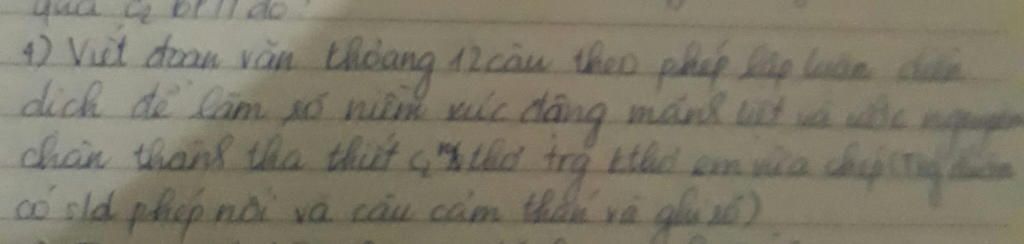 quả c₂ BPTT đó
4) Viết đoạn văn khoảng 12 câu theo phép lập luận diễn
dịch để làm rõ niềm xúc động mãnh liệt và ước nguyện
chân thành tha thiết c₂ thơ trg kthơ em vừa chép (Trg đoạn
có sld phép nối và câu cảm thán và ghi rõ)